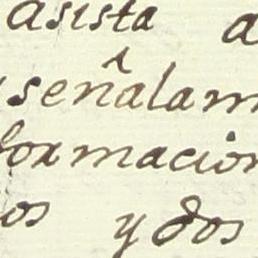 asista a
señalam
formacion
os y dos